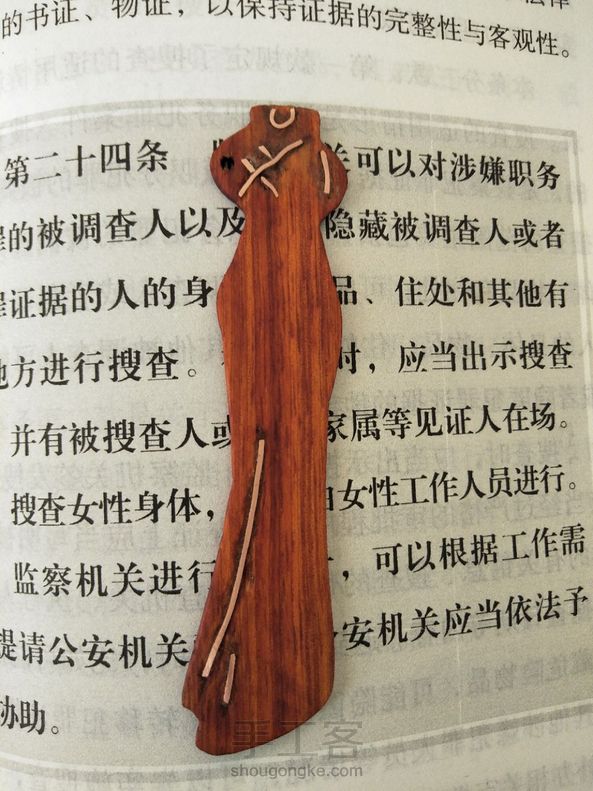 的书证、物证，以保持证据的完整性与客观性。
第二十四条 关可以对涉嫌职务
的被调查人以及 隐藏被调查人或者
证据的人的身 品、住处和其他有
地方进行搜查。 时，应当出示搜查
并有被搜查人或 家属等见证人在场。
搜查女性身体， 由女性工作人员进行。
监察机关进行 ，可以根据工作需
提请公安机关 安机关应当依法予
协助。
手工客
shougongke.com